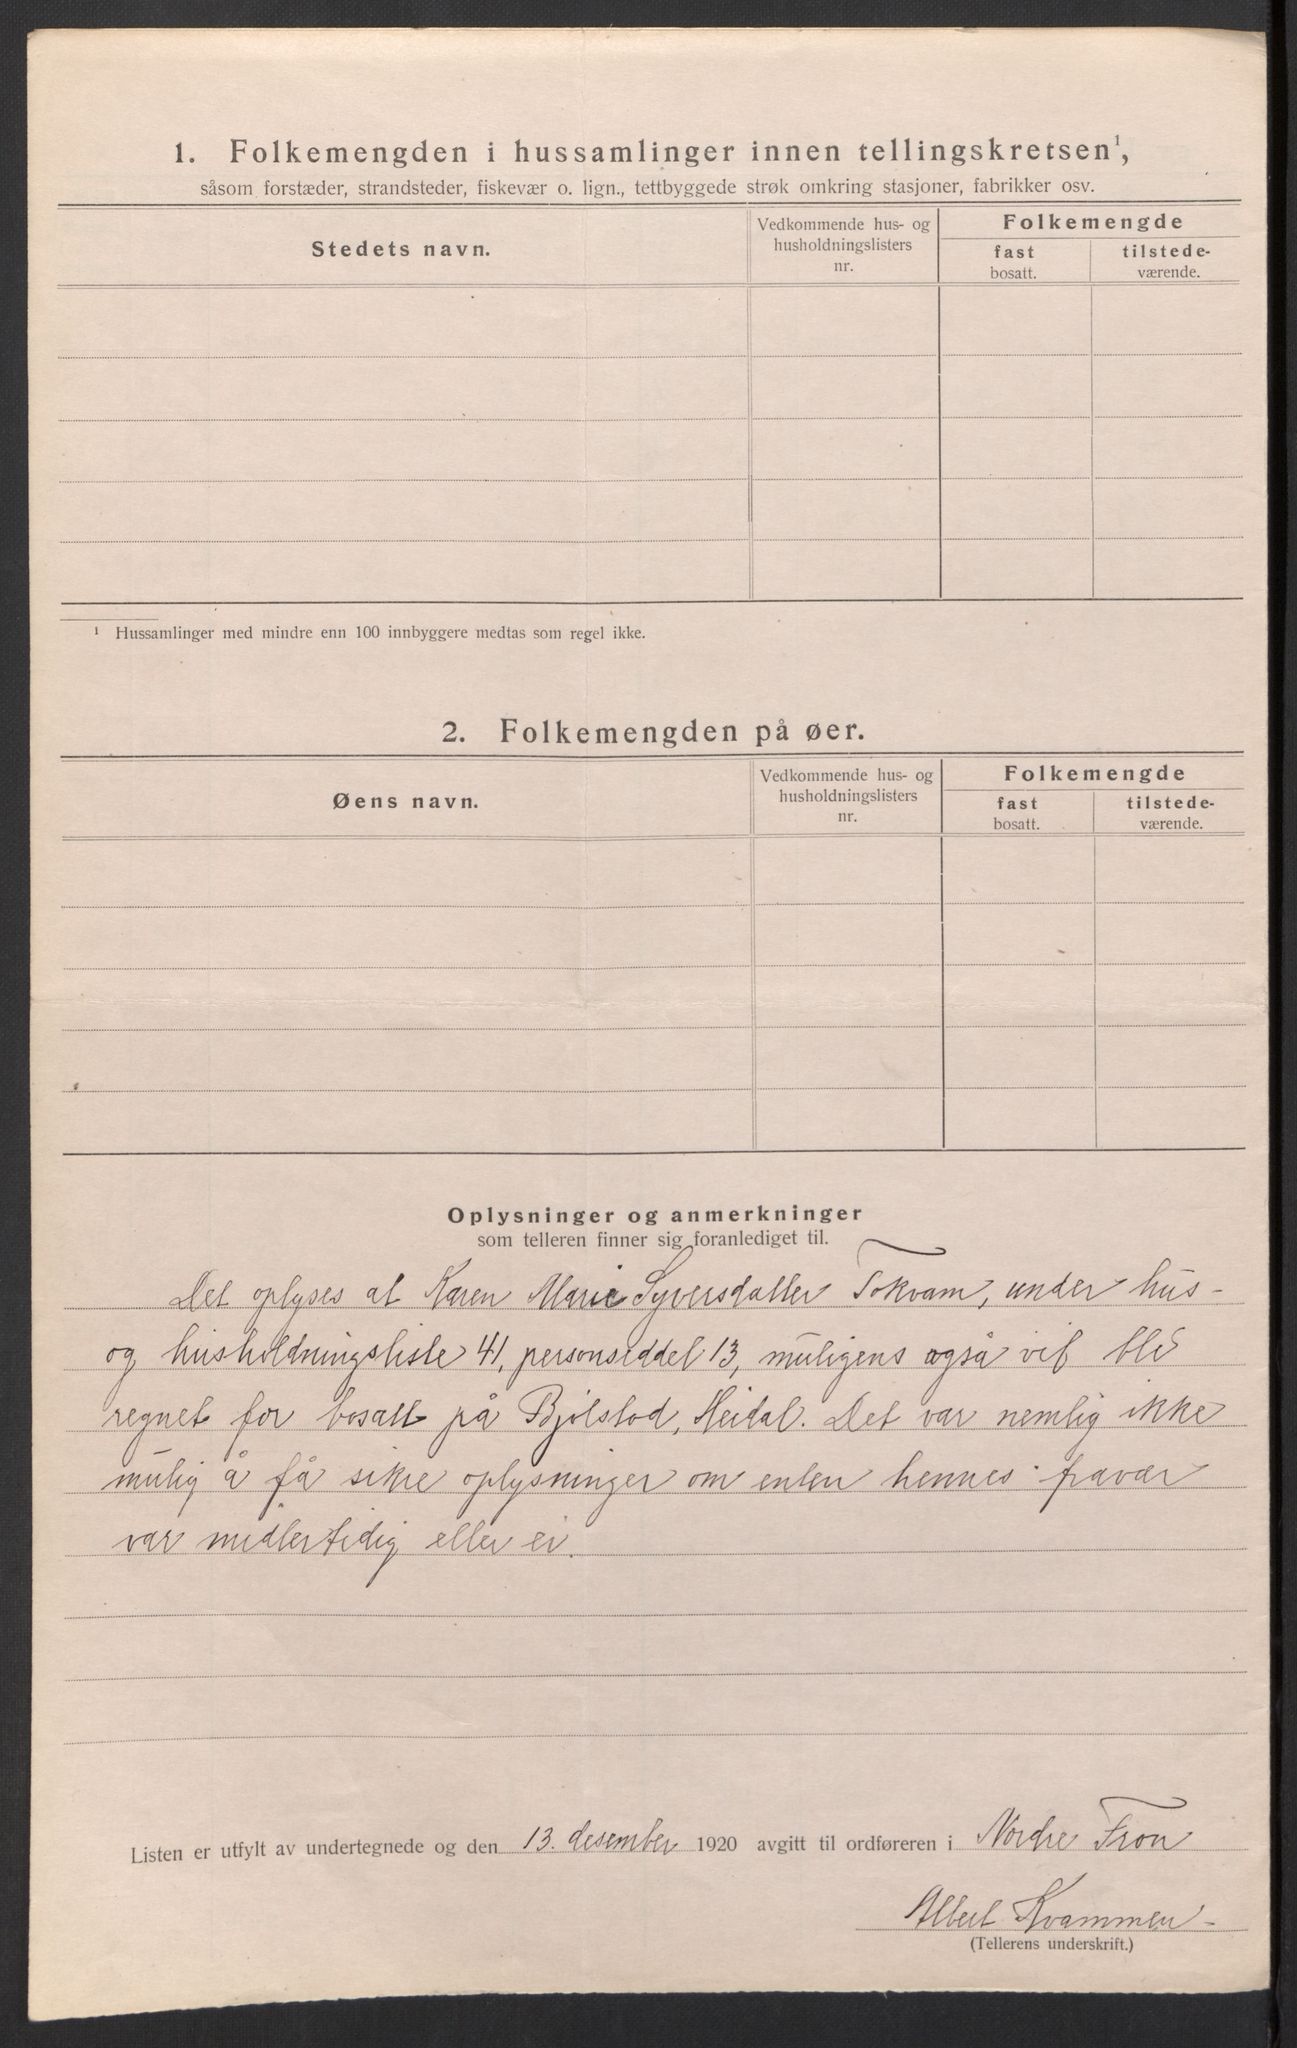 1. Folkemengden i hussamlinger innen tellingskretsen¹,
såsom forstæder, strandsteder, fiskevær o. lign., tettbyggede strøk omkring stasjoner, fabrikker osv.
Stedets navn.
Vedkommende hus- og
husholdningslisters
nr.
Folkemengde
fast
bosatt.
tilstede-
værende.
¹ Hussamlinger med mindre enn 100 innbyggere medtas som regel ikke.
2. Folkemengden på øer.
Øens navn.
Vedkommende hus- og
husholdningslisters
nr.
Folkemengde
fast
bosatt.
tilstede-
værende.
Oplysninger og anmerkninger
som telleren finner sig foranlediget til.
Det oplyses at Karen Marie Syversdatter Tokvam, under hus-
og husholdningsliste 41, personseddel 13, muligens også vil bli
regnet for bosatt på Bjølstad, Heidal. Det var nemlig ikke
mulig å få sikre oplysninger om enten hennes fravær
var midlertidig eller ei.
Listen er utfylt av undertegnede og den 13. desember 1920 avgitt til ordføreren i Nordre Fron
Albert Kvammen
(Tellerens underskrift.)